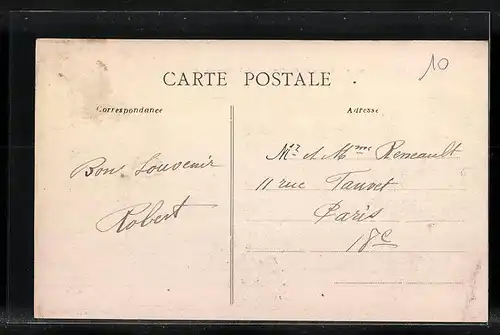 10
CARTE POSTALE
Correspondance
Adresse
Bon Souvenir
Robert
Mr et Mme Reneault
11 rue Tauvet
Paris
18e